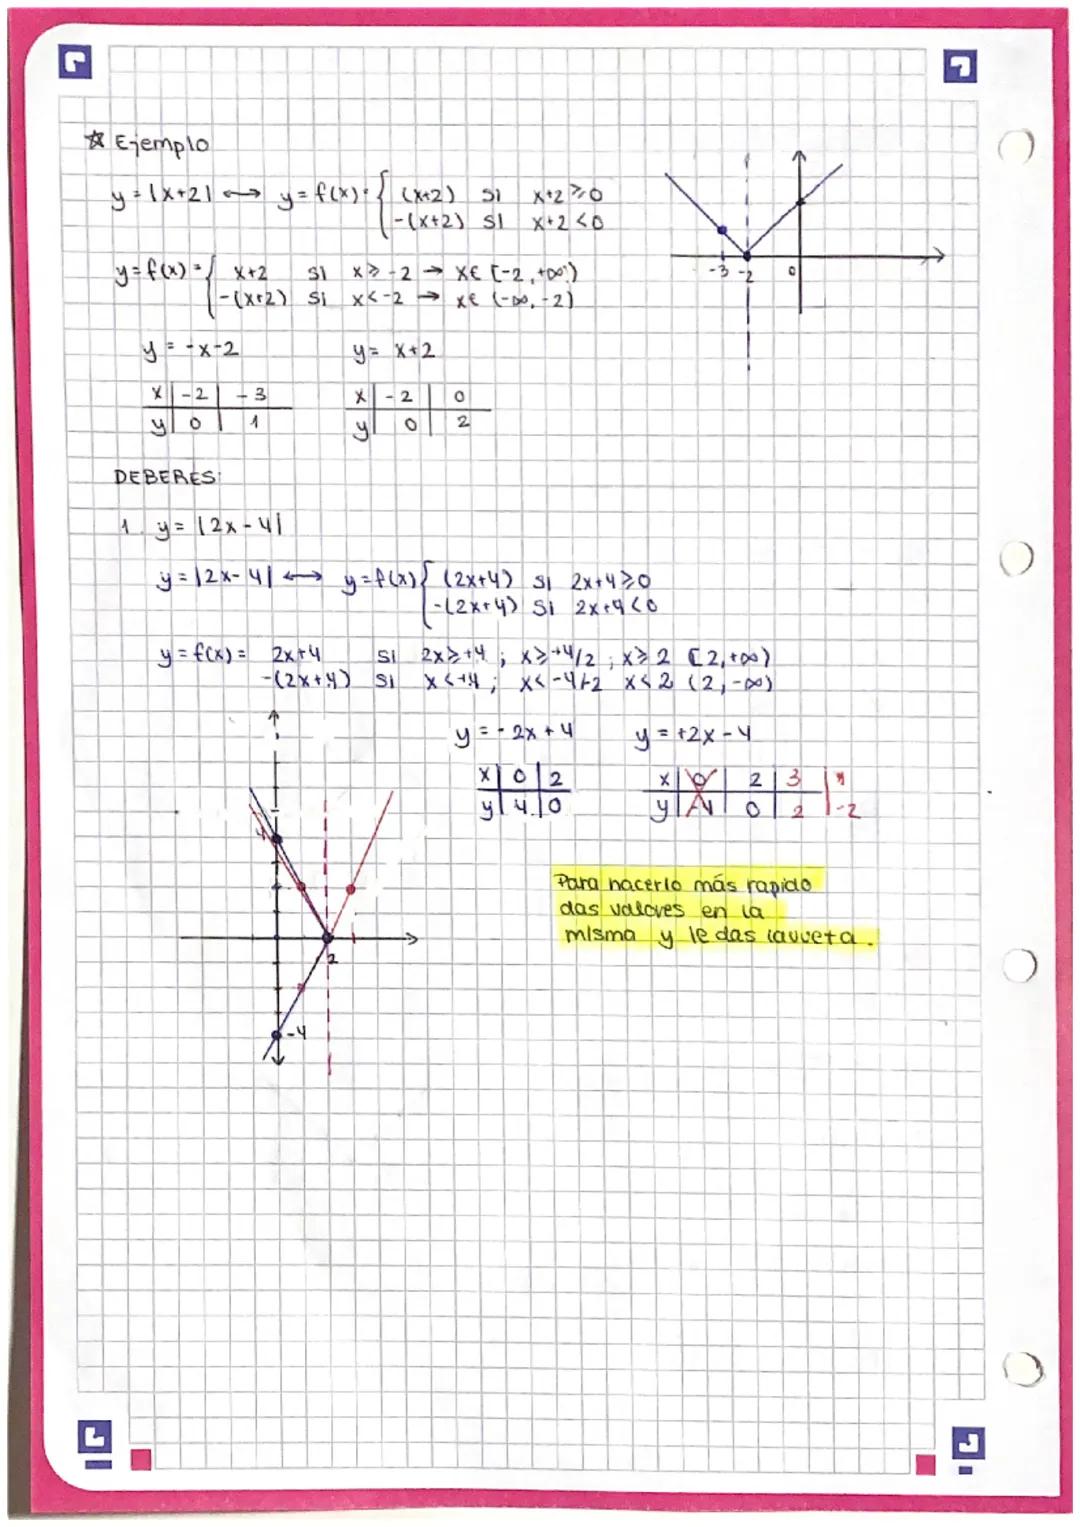 ☆ Ejemplo
y = |x+2| ⟷ y = f(x) = { (x+2) si x+2 ≥ 0
-(x+2) si x+2 < 0
y = f(x) = { x+2 si x ≥ -2 → x∈ [-2, +∞)
-(x+2) si x < -2 → x∈ (-∞, -2)
-3 -2 0
y = -x-2 y = x+2
x | -2 | -3 x | -2 | 0
y | 0 | 1 y | 0 | 2
DEBERES:
1. y = |2x-4|
y = |2x-4| ⟷ y = f(x) { (2x+4) si 2x+4 ≥ 0
-(2x+4) si 2x+4 < 0
y = f(x) = 2x+4 si 2x ≥ +4 ; x ≥ +4/2 ; x ≥ 2 [2, +∞)
-(2x+4) si x < +4 ; x < -4/-2 x < 2 (2, -∞)
y = -2x + 4 y = +2x - 4
x | 0 | 2 x | 0 | 2 | 3 | 1
y | 4 | 0 y | -4 | 0 | 2 | -2
4
2
-4
Para hacerlo más rapido
das valores en la
misma y le das la vuelta.